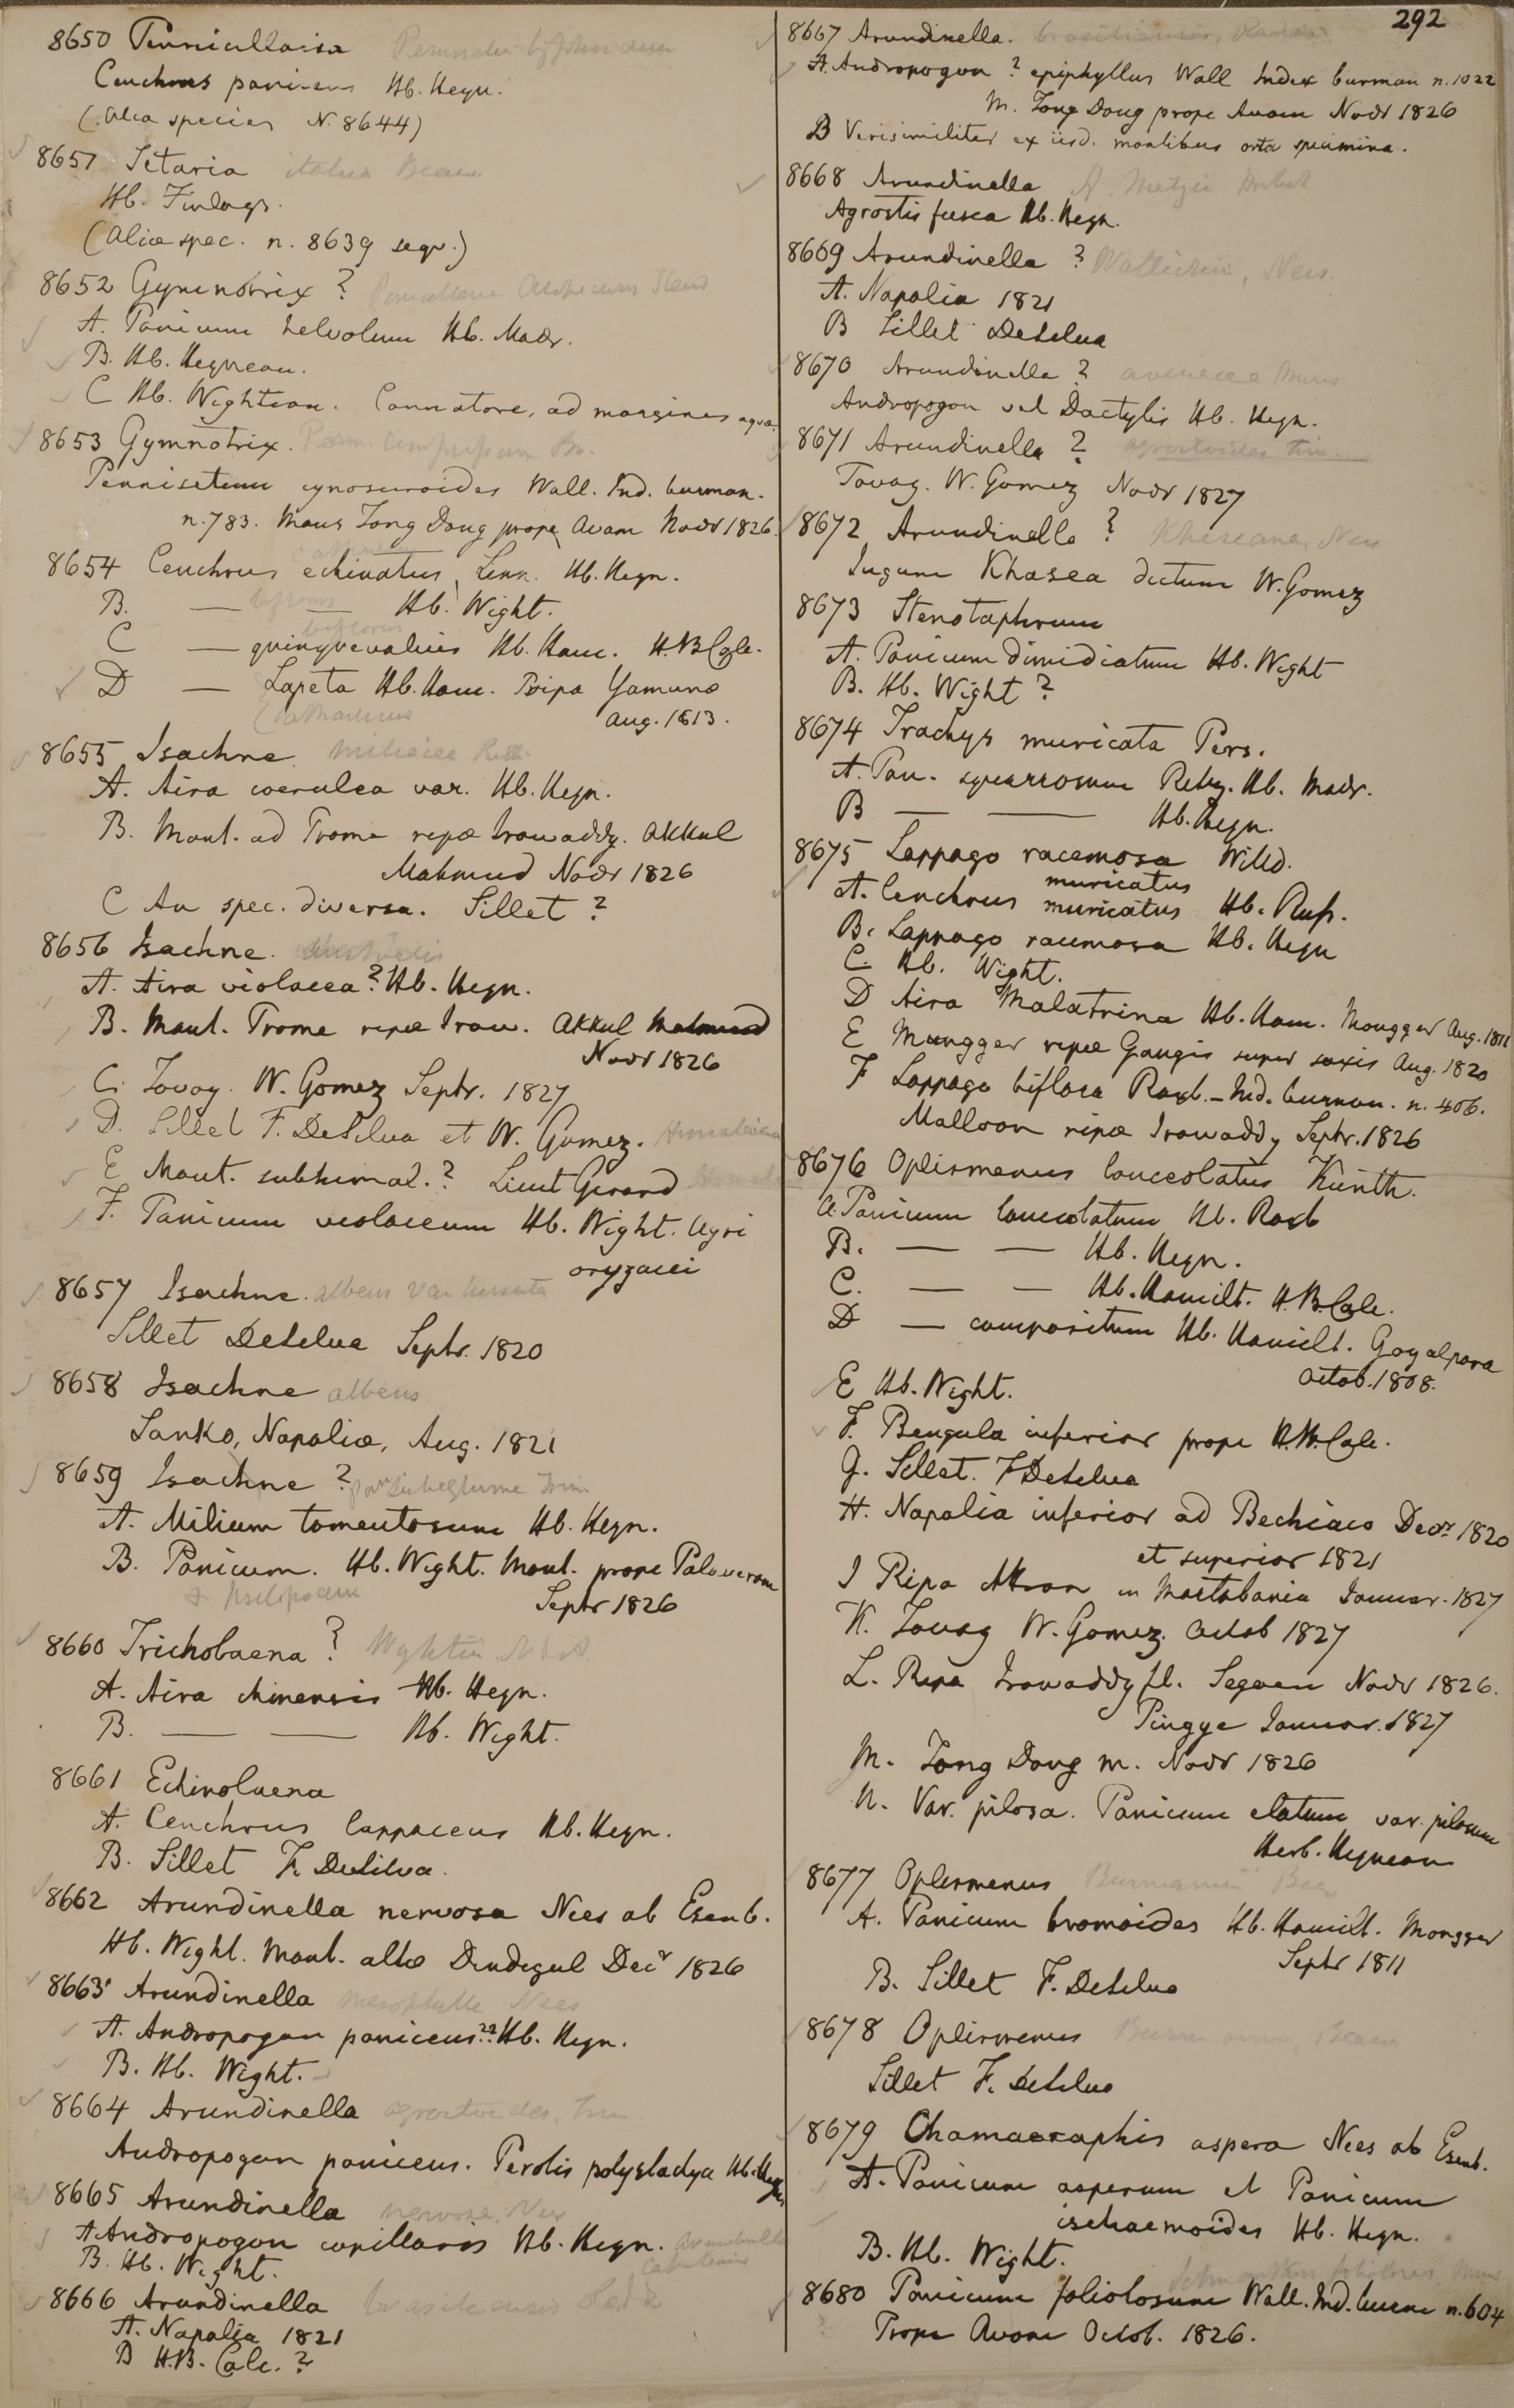 292
8650 Pennicillaria
Cenchrus paniceus Hb. Heyn.
(Alia species N. 8644)
8651 Setaria italica Beauv.
Hb. Finlays.
(Aliæ spec. n. 8639 seqv.)
8652 Gymnotrix ?
A. Panicum helvolum Hb. Madr.
B. Hb. Heyneau.
C Hb. Wightian. Cannatore, ad margines aquæ.
8653 Gymnotrix.
Pennisetum cynosuroides Wall. Ind. burman.
n. 783. Mons Tong Dong prope Avam Novr 1826.
8654 Cenchrus echinatus Linn. Hb. Heyn.
B. — biflorus — Hb. Wight.
biflorus
C — quinquevalvis Hb. Ham. H.B.Calc.
D — Lapeta Hb. Ham. Ripa Yamunæ
catharticus Aug. 1813.
8655 Isachne miliacea Roth.
A. Aira coerulea var. Hb. Heyn.
B. Mont. ad Prome ripæ Irawaddy. Akkul
Mahmud Novr 1826
C An spec. diversa. Sillet ?
8656 Isachne. australis
A. Aira violacea? Hb. Heyn.
B. Mont. Prome ripæ Iraw. Akkul Mahmud
Novr 1826
C. Tavoy. W. Gomez Septr. 1827
D. Sillet F. DeSilva et W. Gomez.
E Mont. subhimal. ? Lieut Gerard
F. Panicum violaceum Hb. Wight. Agri
oryzacei
8657 Isachne. albens var hirsuta
Sillet DeSilva Septr. 1820
8658 Isachne albens
Sanko, Napaliæ, Aug. 1821
8659 Isachne ?
A. Milium tomentosum Hb. Heyn.
B. Panicum. Hb. Wight. Mont. prope Palaveram
Septr 1826
8660 Tricholaena ? Wightii N & A
A. Aira chinensis Hb. Heyn.
B. — — Hb. Wight.
8661 Echinolaena
A. Cenchrus lappaceus Hb. Heyn.
B. Sillet F. DeSilva.
8662 Arundinella nervosa Nees ab Esenb.
Hb. Wight. Mont. altæ Dindegul Decr 1826
8663 Arundinella mesophylla Nees
A. Andropogon paniceus?? Hb. Heyn.
B. Hb. Wight.
8664 Arundinella agrostoides, Trin.
Andropogon paniceus. Perotis polystachya Hb. Heyn.
8665 Arundinella nervosa, Nees
A Andropogon capillaris Hb. Heyn.
B. Hb. Wight.
8666 Arundinella brasiliensis Raddi
A. Napalia 1821
B H.B. Calc. ?
8667 Arundinella. brasiliensis, Raddi
A. Andropogon ? epiphyllus Wall Index burman n. 1022
M. Tong Dong prope Avam Novr 1826
B Verisimiliter ex iisd. montibus orta specimina.
8668 Arundinella A. Metzii Hochst
Agrostis fusca Hb. Heyn.
8669 Arundinella ? Wallichii, Nees.
A. Napalia 1821
B Sillet DeSilva
8670 Arundinella ? avenacea Munro
Andropogon vel Dactylis Hb. Heyn.
8671 Arundinella ? agrostoides Trin.
Tavoy. W. Gomez Novr 1827
8672 Arundinella ? Khaseana Nees
Jugum Khasea dictum W. Gomez
8673 Stenotaphrum
A. Panicum dimidiatum Hb. Wight
B. Hb. Wight ?
8674 Trachys muricata Pers.
A. Pan. squarrosum Retz. Hb. Madr.
B — — Hb. Heyn.
8675 Lappago racemosa Willd.
muricatus
A. Cenchrus muricatus Hb. Russ.
B. Lappago racemosa Hb. Heyn
C. Hb. Wight.
D Aira Malatrina Hb. Ham. Mongger Aug. 1811
E Mungger ripæ Gangis super saxis Aug. 1820
F Lappago biflora Roxb. – Ind. burman. n. 406.
Malloon ripæ Irawaddy Septr. 1826
8676 Oplismenus lanceolatus Kunth.
A. Panicum lanceolatum Hb. Roxb
B. — — Hb. Heyn.
C. — — Hb. Hamilt. H.B.Calc.
D — compositum Hb. Hamilt. Goyalpara
Octob. 1808.
E Hb. Wight.
F. Bengala inferior prope H.B.Calc.
G. Sillet. F DeSilva
H. Napalia inferior ad Bechiaco Decr. 1820
et superior 1821
I Ripa Attran in Martabania Januar. 1827
K. Tavoy W. Gomez. Octob 1827
L. Ripa Irawaddy fl. Segaen Novr 1826.
Pingye Januar. 1827
M. Tong Dong m. Novr 1826
N. Var. pilosa. Panicum elatum var. pilosum
Herb. Heyneau
8677 Oplismenus Burmanni Beau
A. Panicum bromoides Hb. Hamilt. Mongger
Septr 1811
B. Sillet F. DeSilva
8678 Oplismenus Burmanni, Beauv
Sillet F. DeSilva
8679 Chamaeraphis aspera Nees ab Esenb.
A. Panicum asperum et Panicum
ischaemoides Hb. Heyn.
B. Hb. Wight.
8680 Panicum foliolosum Wall. Ind. burm n. 604
Prope Avam Octob. 1826.